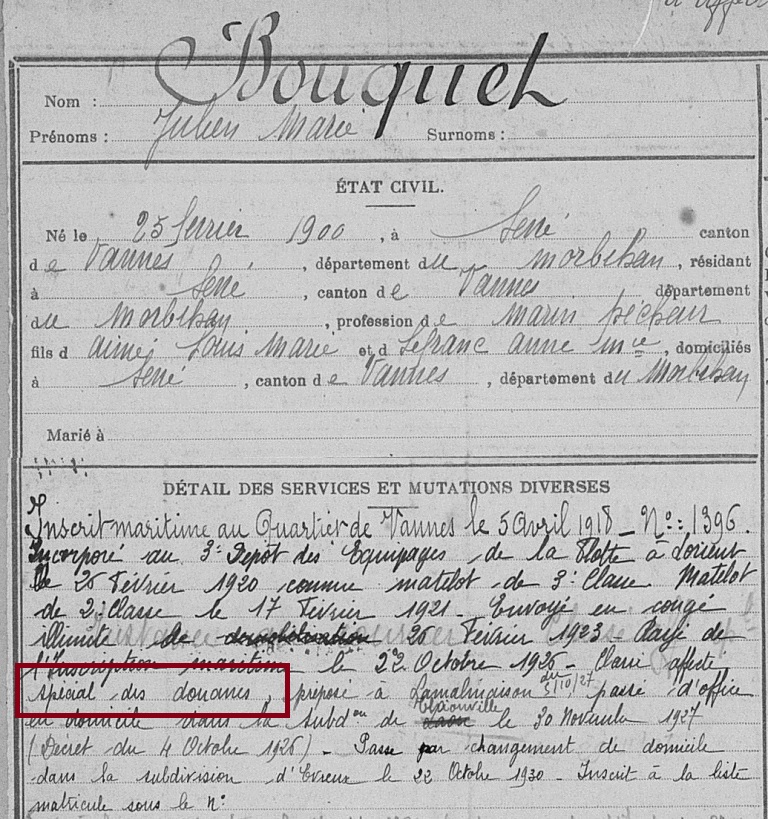 Nom : Bouquet
Prénoms : Julien Marie Surnoms :
ÉTAT CIVIL.
Né le 25 février 1900, à Séné canton
de Vannes, département du Morbihan, résidant
à Séné, canton de Vannes département
du Morbihan, profession de marin pêcheur
fils d aimé Louis Marie et d Lefranc anne mie, domiciliés
à Séné, canton de Vannes, département du Morbihan
Marié à
DÉTAIL DES SERVICES ET MUTATIONS DIVERSES
Inscrit maritime au Quartier de Vannes le 5 Avril 1918 _ No: 1396.
Incorporé au 3e Dépôt des Equipages de la Flotte à Lorient
le 25 Février 1920 comme matelot de 3e Classe Matelot
de 2e Classe le 17 Février 1921. Envoyé en congé
illimité 26 Février 1923 _ Rayé de
l'Inscription maritime le 22 Octobre 1926 _ Classé affecté
spécial des douanes, préposé à Lamalmaison du 5/10/27 passé d'office
en domicile dans la subdon de Thionville le 30 Novembre 1927
(Décret du 4 Octobre 1926) _ Passe par changement de domicile
dans la subdivision d'Evreux le 22 Octobre 1930 _ Inscrit à la liste
matricule sous le no: